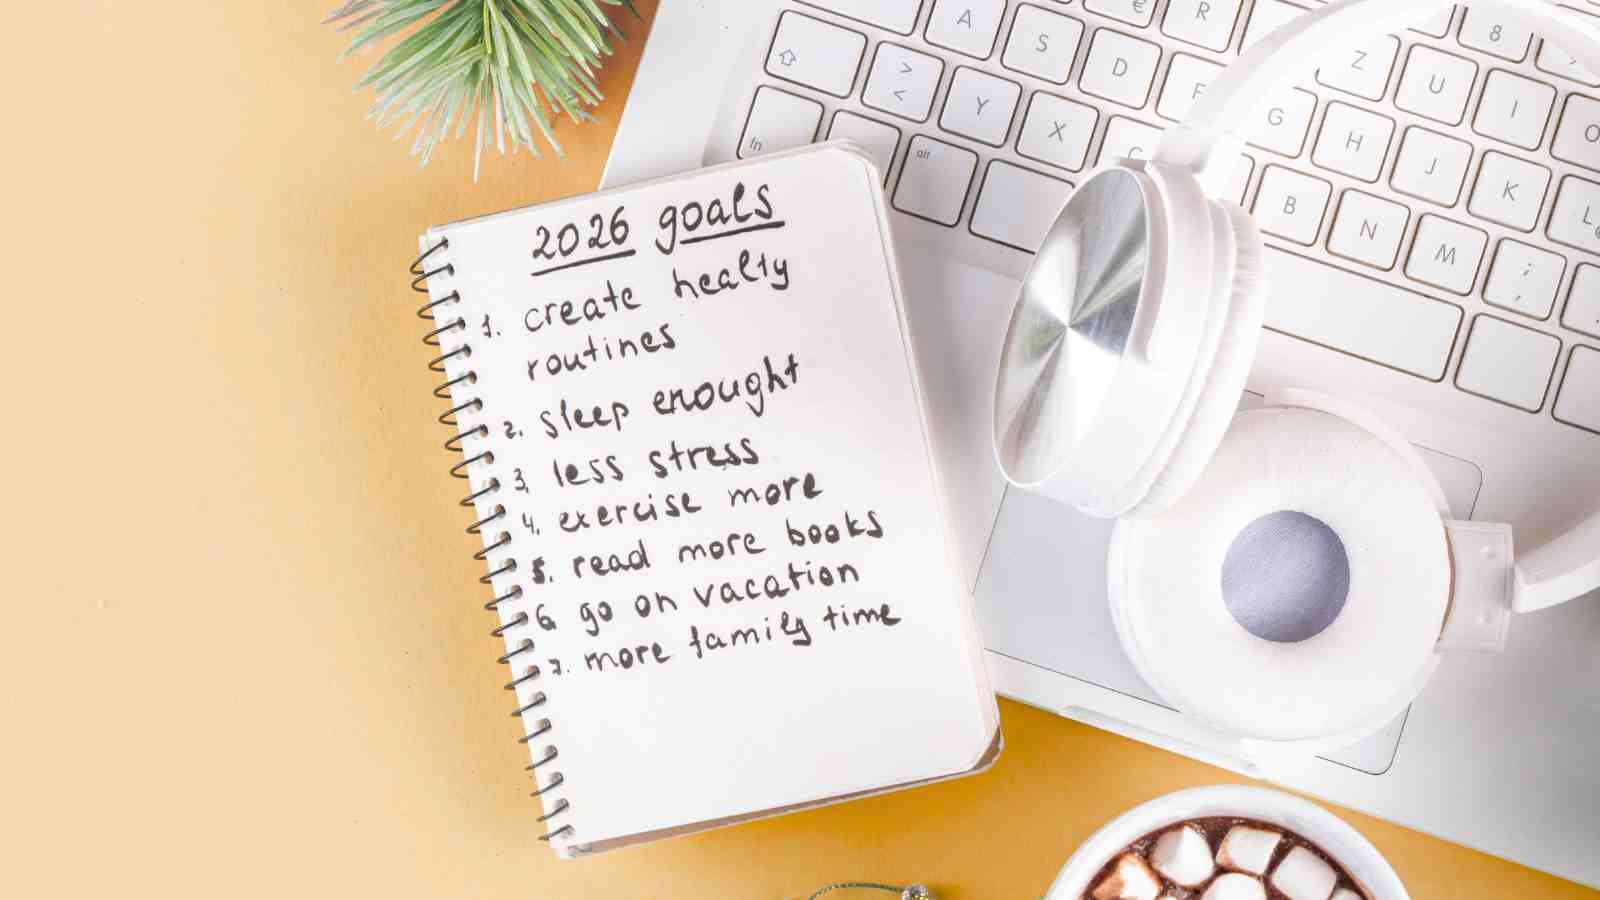 2026 goals
1. create healty
routines
2. sleep enought
3, less stress
4. exercise more
5. read more books
6. go on vacation
7. more family time
A
€
R
S
D
F
Z
U
8
I
O
>
<
Y
X
C
G
H
J
K
L
fn
alt
B
N
M
;